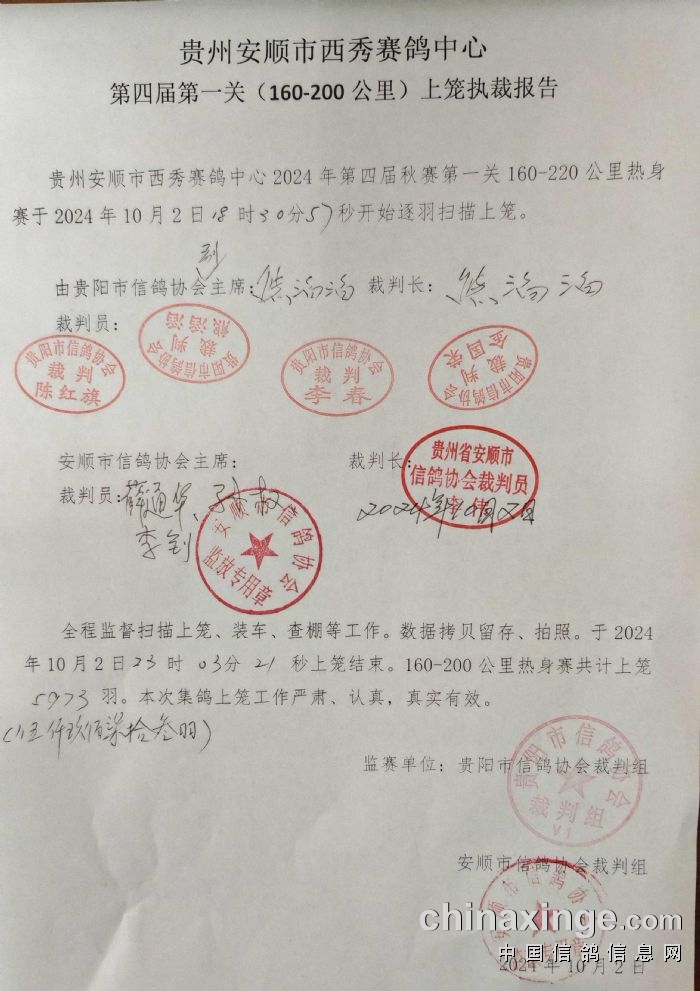 贵州安顺市西秀赛鸽中心
第四届第一关（160-200公里）上笼执裁报告
贵州安顺市西秀赛鸽中心2024年第四届秋赛第一关160-220公里热身
赛于2024年10月2日18时30分57秒开始逐羽扫描上笼。
副
由贵阳市信鸽协会主席：熊滔滔 裁判长：熊滔滔
裁判员：
贵阳市信鸽协会 裁判 陈红旗
贵阳市信鸽协会 裁判 熊滔滔
贵阳市信鸽协会 裁判 李春
贵阳市信鸽协会 裁判 金国荣
安顺市信鸽协会主席： 裁判长
贵州省安顺市
信鸽协会裁判员
裁判员：薛通华、
李钊
2024年10月2日
安顺市信鸽协会
监放专用章
全程监督扫描上笼、装车、查棚等工作。数据拷贝留存、拍照。于2024
年10月2日23时03分21秒上笼结束。160-200公里热身赛共计上笼
5973羽。本次集鸽上笼工作严肃、认真，真实有效。
（伍仟玖佰柒拾叁羽）
监赛单位：贵阳市信鸽协会裁判组
贵阳市信鸽协会
裁判组
V1
安顺市信鸽协会裁判组
安顺市信鸽协会
chinaxinge.com
中国信鸽信息网
2024年10月2日